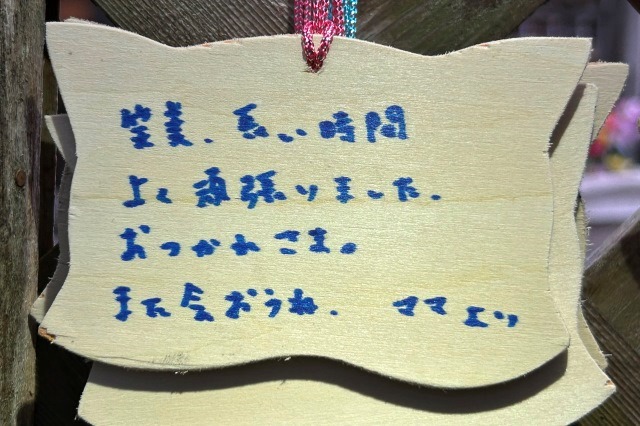 笑美、長い時間
よく頑張りました。
おつかれさま。
また会おうね. ママより